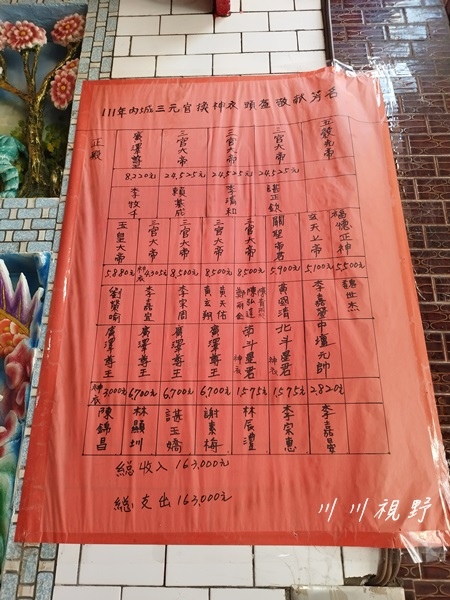 111年內城三元官換神衣頭盔敬獻芳名
正殿
廣澤尊王 三官大帝 三官大帝 三官大帝 五穀先帝
8,220元 24,525元 24,525元 24,525元
李牧千 賴業成 李清和 諶正欽
玉皇大帝 三官大帝 三官大帝 三官大帝 三官大帝 關聖帝君 玄天上帝 福德正神
5,880元 神衣4,305元 8,500元 8,500元 8,500元 5,900元 5,100元 5,500元
劉榮喻 李孟宜 李宋周 黃天佑 黃玄翔 陳弘達 黃國清 李嘉榮 魏世杰
廣澤尊王 廣澤尊王 廣澤尊王 廣澤尊王 南斗星君 神衣 北斗星君 神衣 中壇元帥
神衣 3000元 6,700元 6,700元 6,700元 1575元 1575元 2,820元
陳錦昌 林顯圳 諶王嬌 謝素梅 林辰澧 李宗惠 李嘉晏
總收入163,000元
總支出163,000元
川川視野